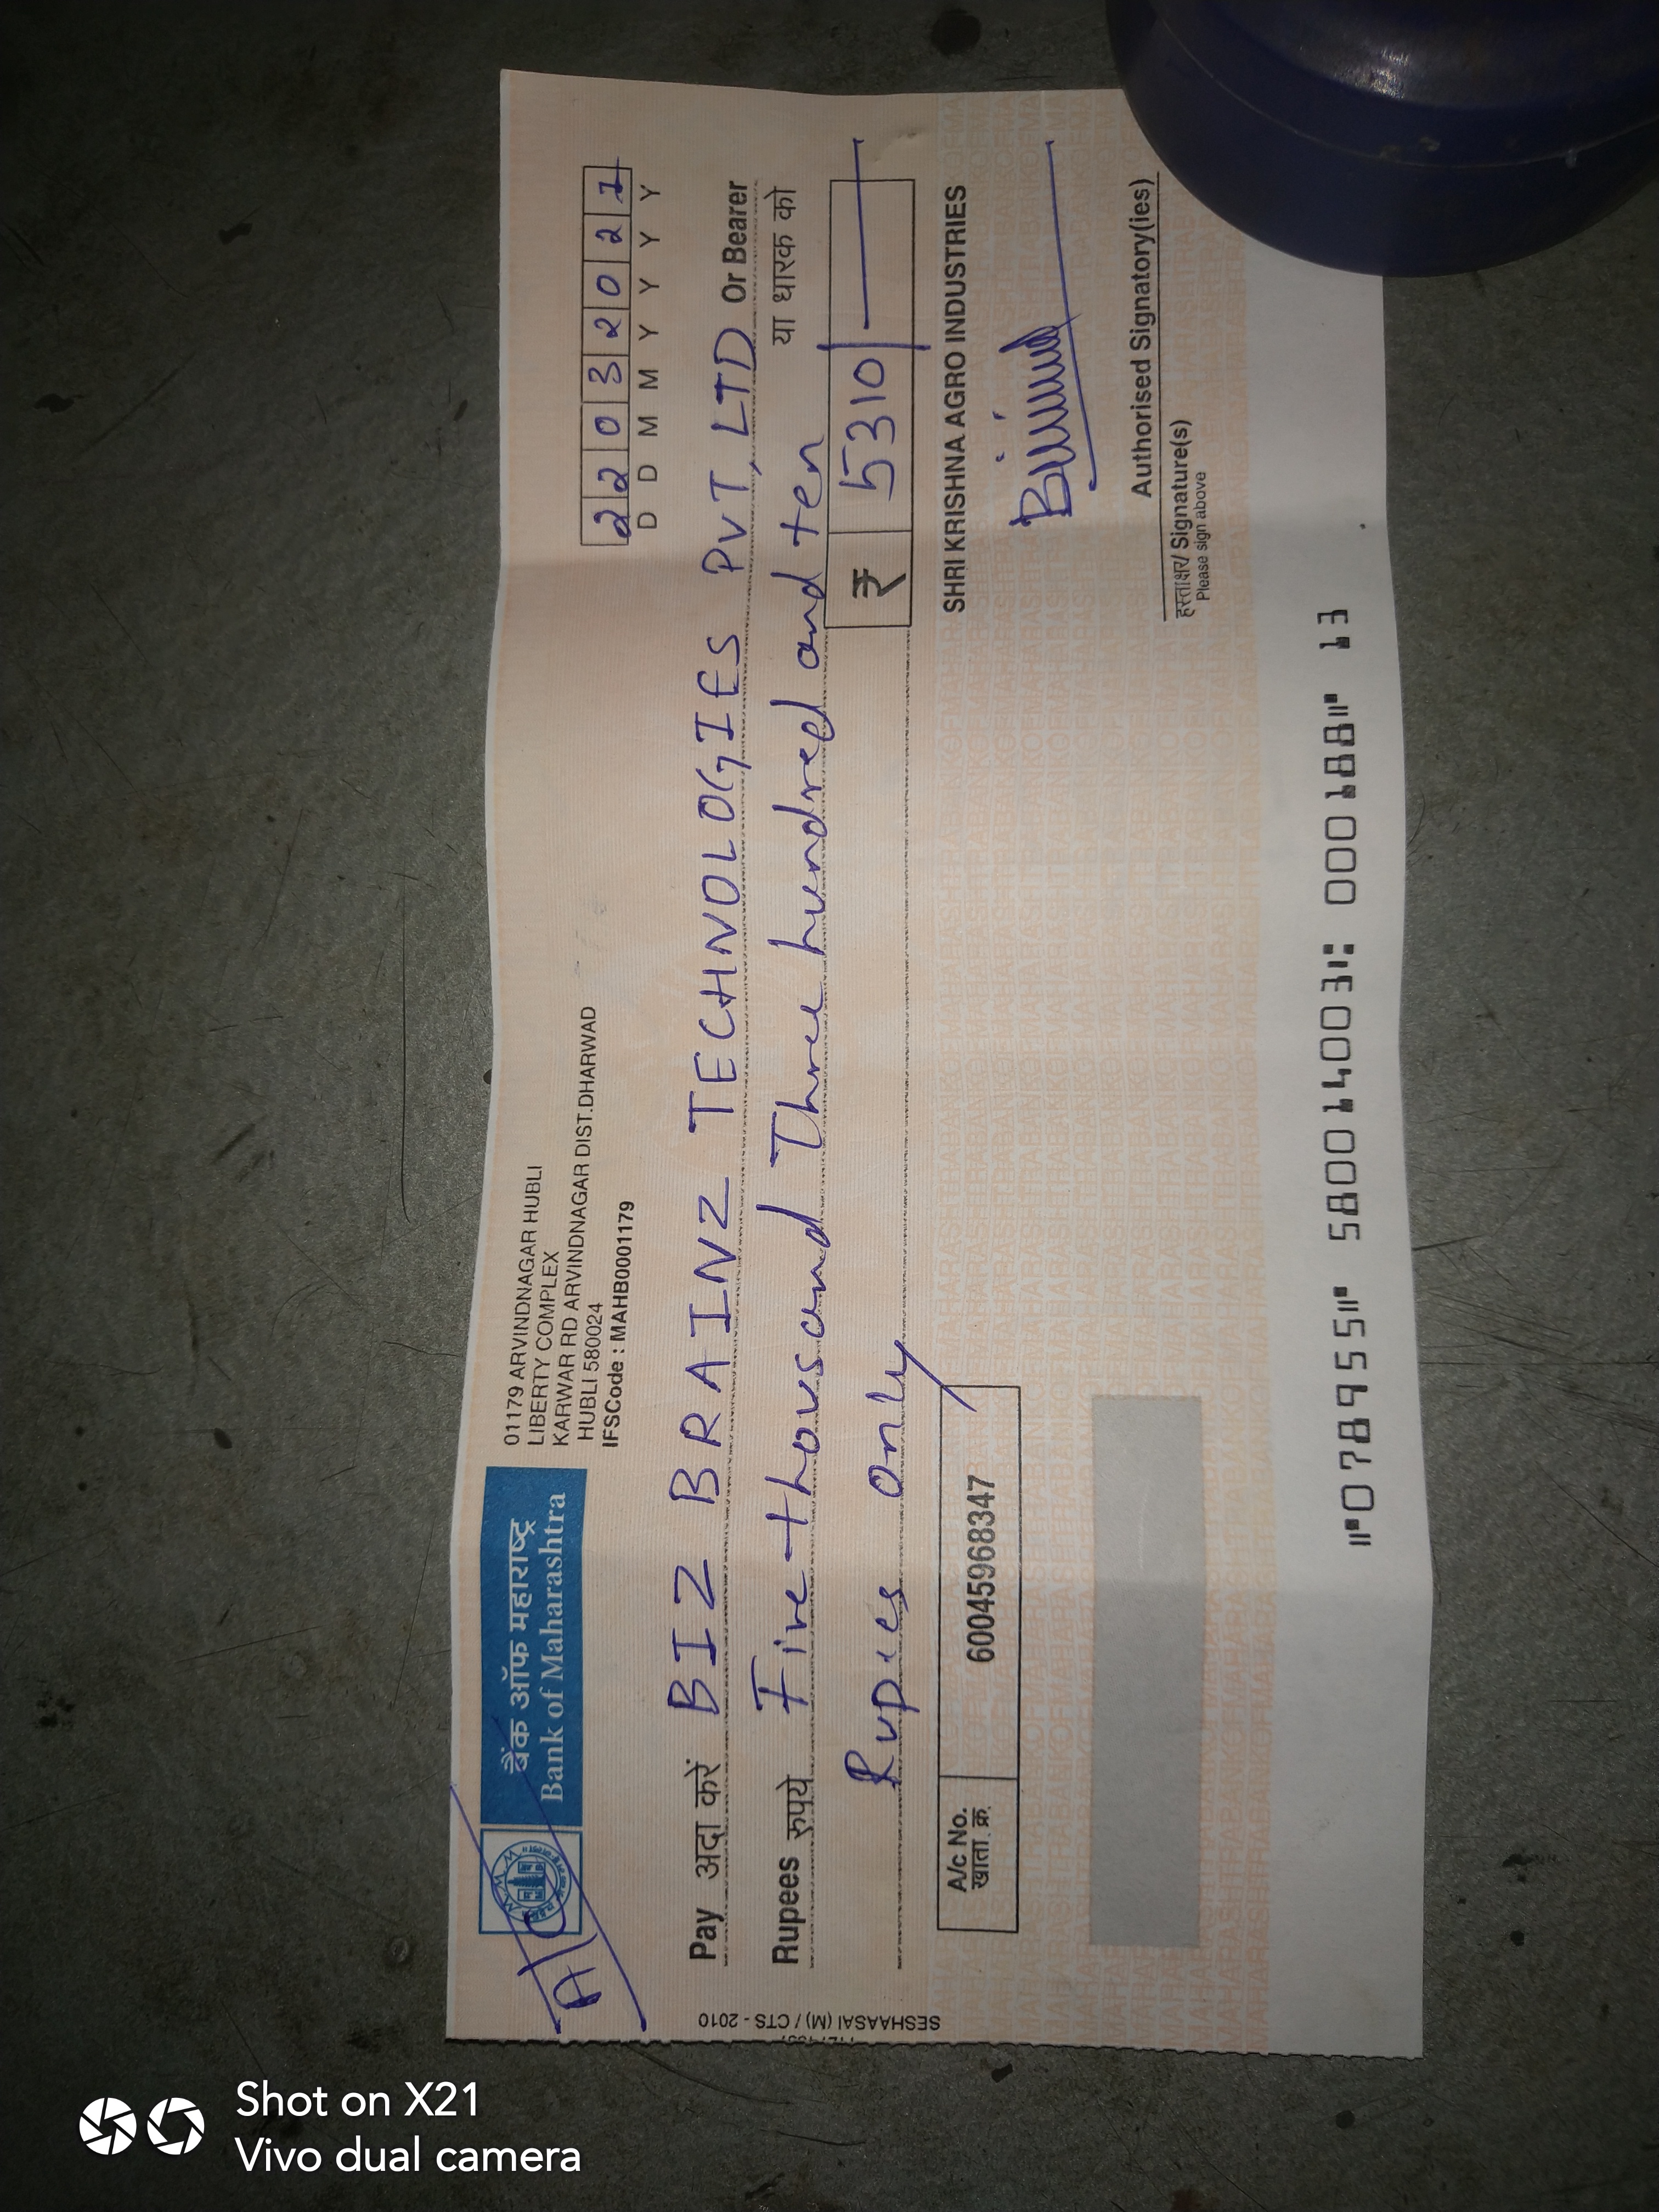 A/C
बैंक ऑफ महाराष्ट्र
Bank of Maharashtra
01179 ARVINDNAGAR HUBLI
LIBERTY COMPLEX
KARWAR RD ARVINDNAGAR DIST.DHARWAD
HUBLI 580024
IFSCode : MAHB0001179
2 2 0 3 2 0 2 1
D D M M Y Y Y Y
Pay अदा करें BIZ BRAINZ TECHNOLOGIES PVT, LTD Or Bearer
या धारक को
Rupees रुपये Five thousand Three hundred and ten
Rupies only
₹ 5310/-
A/c No.
खाता क्र.
60045968347
SHRI KRISHNA AGRO INDUSTRIES
Authorised Signatory(ies)
हस्ताक्षर/ Signature(s)
Please sign above
SESHAASAI (M) / CTS - 2010
⑈078955⑈ 580014003⑆ 000188⑈ 13
Shot on X21
Vivo dual camera